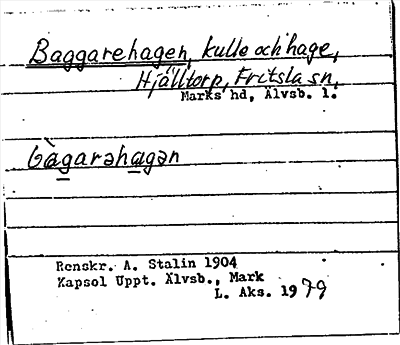 Baggarehagen, kulle och hage,
Hjälltorp, Fritsla sn,
Marks hd, Älvsb. l.
bàgarəhagən
Renskr. A. Stalin 1904
Kapsol Uppt. Älvsb., Mark
L. Aks. 1979